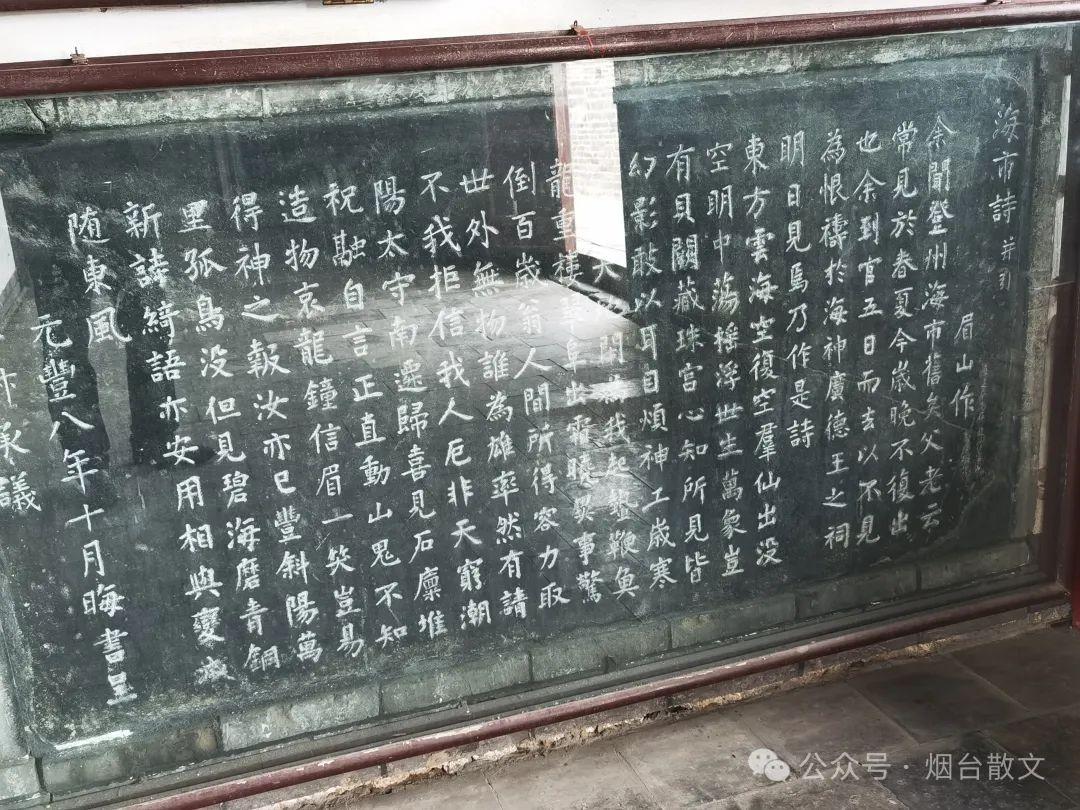 海市詩 并引
眉山作
余聞登州海市舊矣父老云
常見於春夏今歲晚不復出
也余到官五日而去以不見
為恨禱於海神廣德王之祠
明日見焉乃作是詩
東方雲海空復空羣仙出没
空明中蕩搖浮世生萬象豈
有貝闕藏珠宮心知所見皆
幻影敢以耳目煩神工歲寒
天閉為我起蟄鞭魚
龍重樓翠阜出霜曉異事驚
倒百歲翁人間所得容力取
世外無物誰為雄率然有請
不我拒信我人厄非天窮潮
陽太守南遷歸喜見石廩堆
祝融自言正直動山鬼不知
造物哀龍鐘信眉一笑豈易
得神之報汝亦已豐斜陽萬
里孤鳥没但見碧海磨青銅
新詩綺語亦安用相與變滅
随東風
元豐八年十月晦書呈
承議
公众号 · 烟台散文